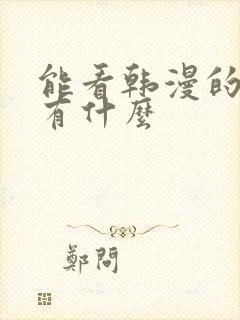 能看韩漫的
有什麽
鄭問